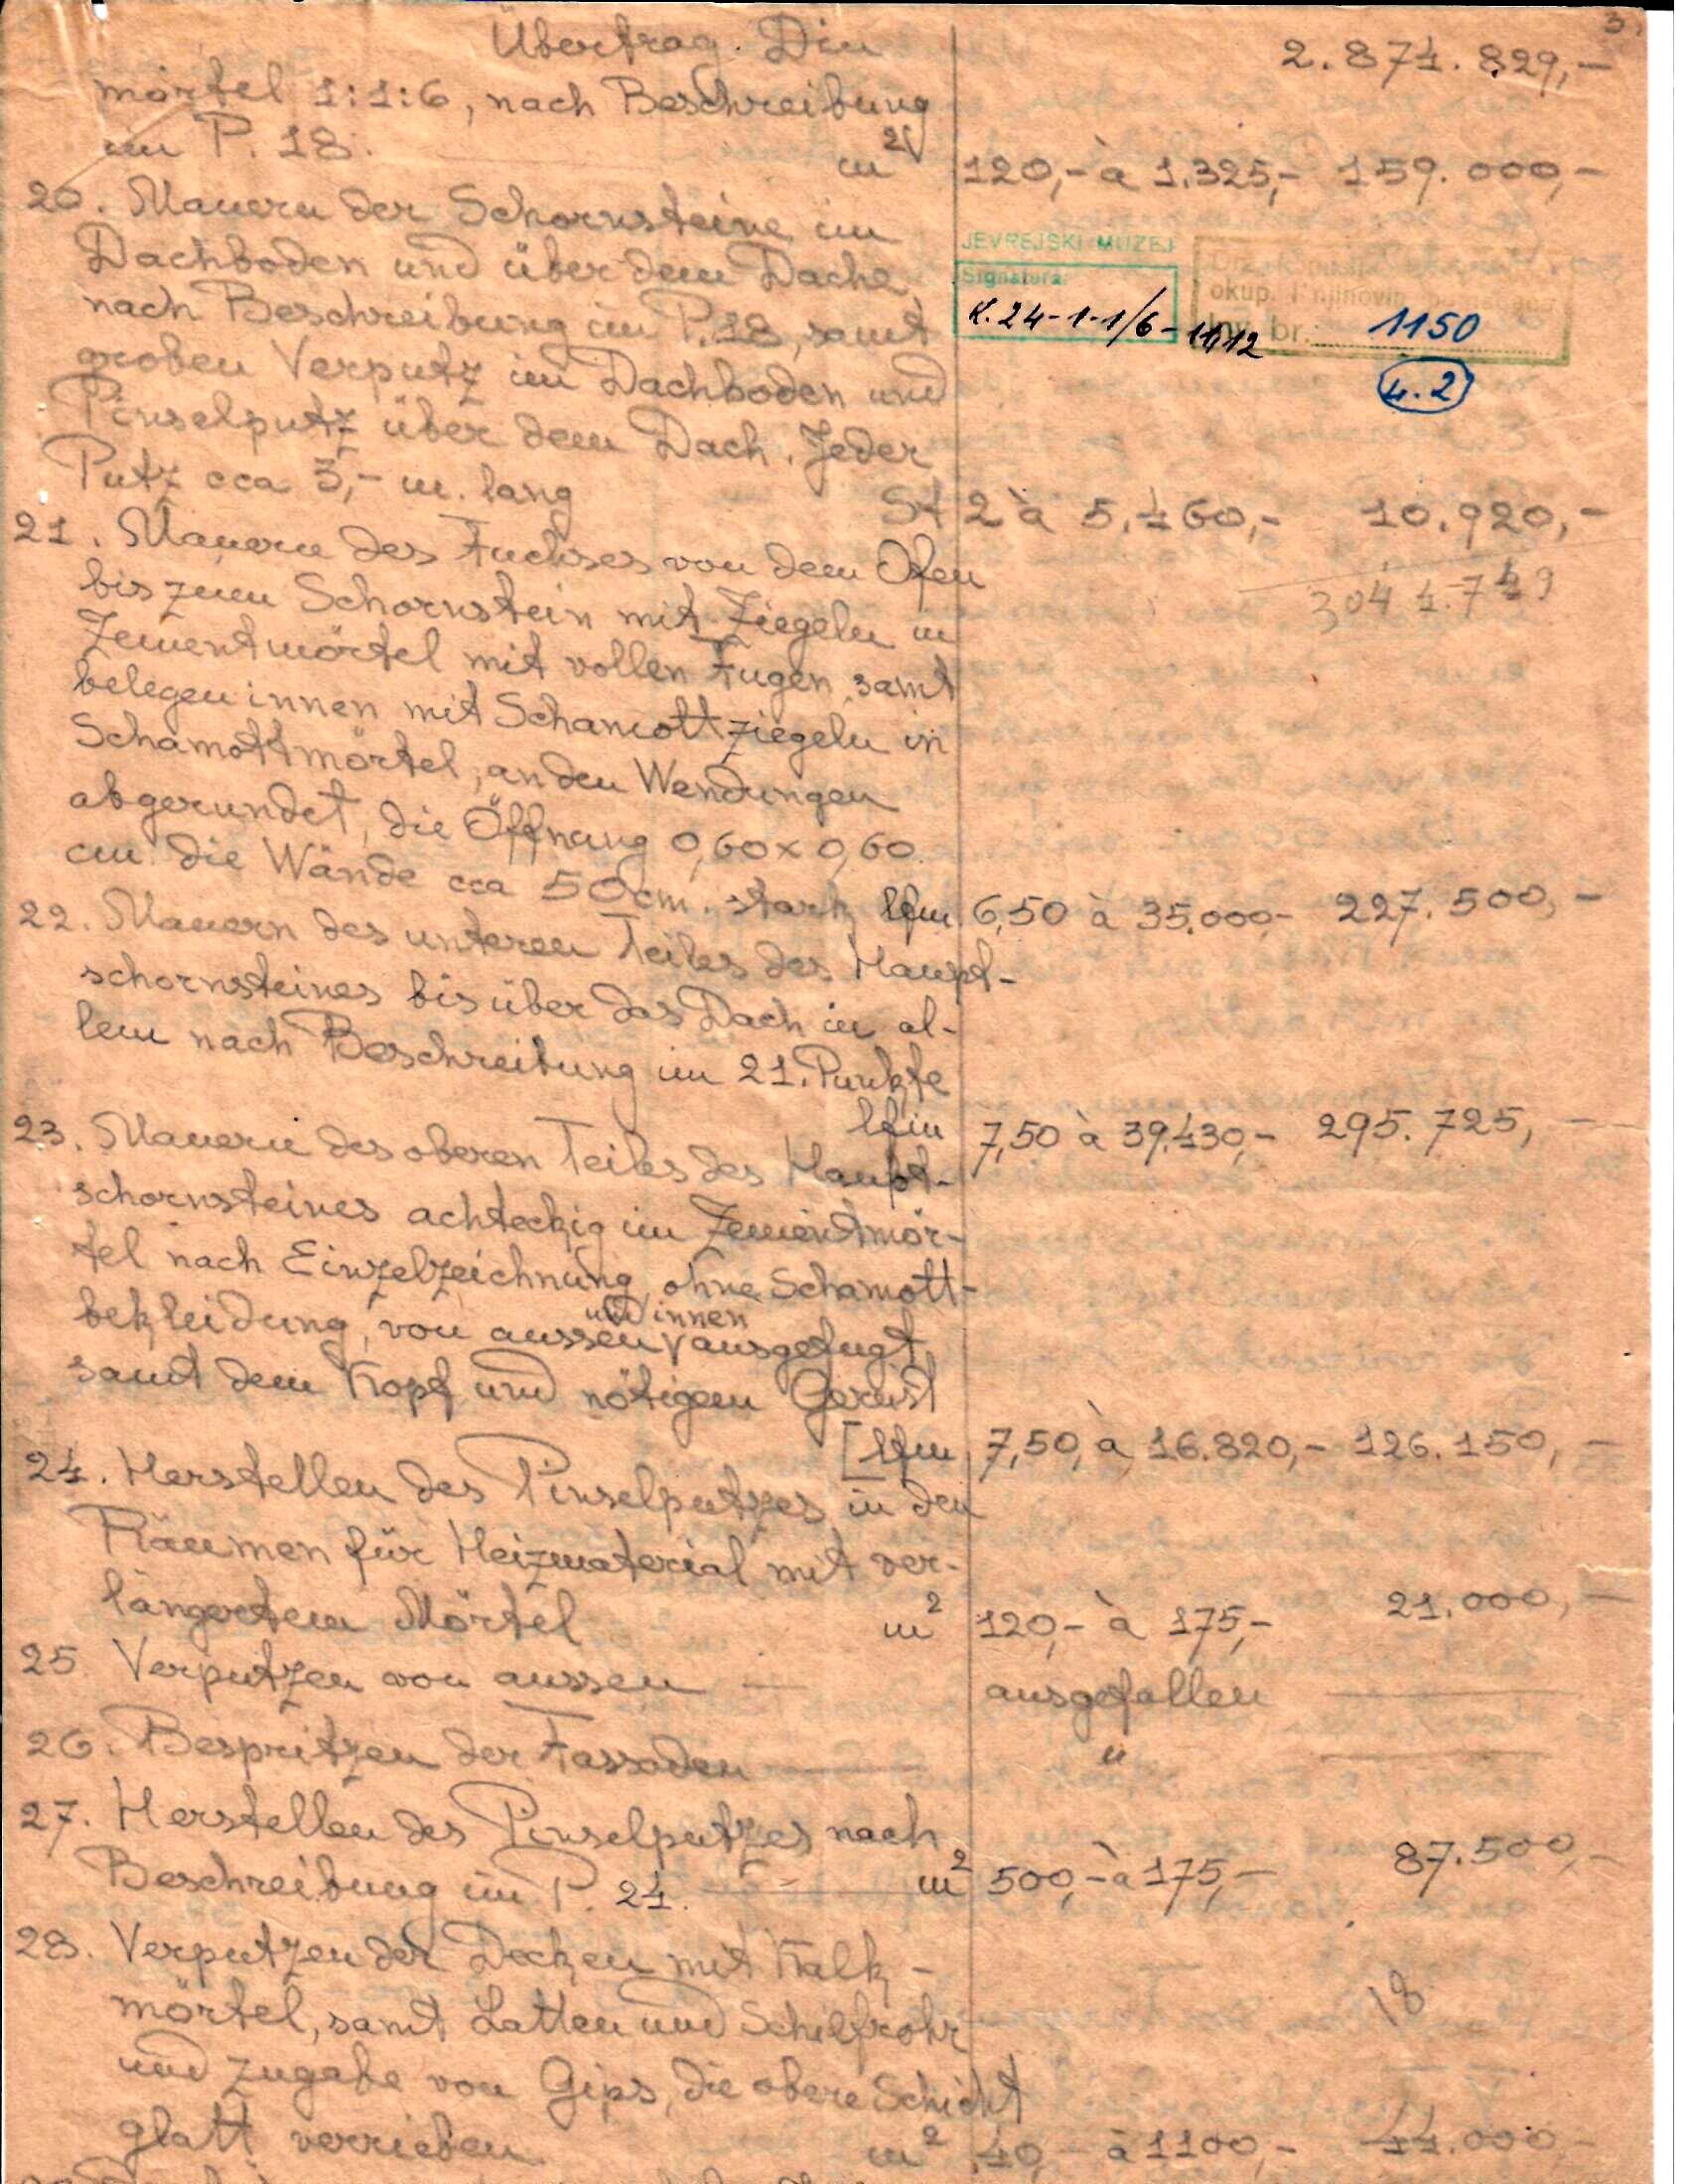 3.
Übertrag. Din 2.871.829,-
mörtel 1:1:6, nach Beschreibung
im P. 18. m² 120,- à 1.325,- 159.000,-
20. Mauern der Schornsteine im
Dachboden und über dem Dache,
JEVREJSKI MUZEJ
Signatura:
K. 24-1-1/6-11/12
okup. i njihovih
br.: 1150
4.2
nach Beschreibung im P. 18, samt
groben Verputz im Dachboden und
Pinselputz über dem Dach. Jeder
Putz cca 3,- m. lang St 2 à 5.460,- 10.920,-
3041.749
21. Mauern des Fuchses von dem Ofen
bis zum Schornstein mit Ziegeln in
Zementmörtel mit vollen Fugen, samt
belegen innen mit Schamottziegeln in
Schamottmörtel, an den Wendungen
abgerundet, die Öffnung 0,60 x 0,60
cm die Wände cca 50 cm. stark lfm 6,50 à 35.000- 227.500,-
22. Mauern des unteren Teiles des Haupt-
schornsteines bis über das Dach in al-
lem nach Beschreibung im 21. Punkte
lfm 7,50 à 39.430,- 295.725,-
23. Mauern des oberen Teiles des Haupt-
schornsteines achteckig im Zementmör-
tel nach Einzelzeichnung, ohne Schamott-
und innen
bekleidung, von aussen V ausgefugt,
samt dem Kopf und nötigem Gerüst
[lfm 7,50, à 16.820,- 126.150,-
24. Herstellen des Pinselputzes in den
Räumen für Heizmaterial mit ver-
längertem Mörtel m² 120,- à 175,- 21.000,-
25. Verputzen von aussen — ausgefallen —
26. Bespritzen der Fassaden — " —
27. Herstellen des Pinselputzes nach
Beschreibung im P. 24. m² 500,- à 175,- 87.500,-
28. Verputzen der Decken mit Kalk-
mörtel, samt Latten und Schilfrohr
18
und Zugabe von Gips, die obere Schicht
glatt verrieben m² 40,- à 1100,- 44.000,-